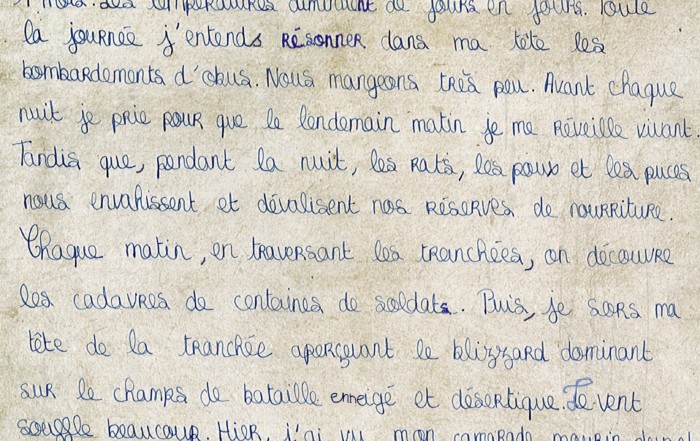 mois. Les températures diminuent de jours en jours. Toute
la journée j'entends résonner dans ma tête les
bombardements d'obus. Nous mangeons très peu. Avant chaque
nuit je prie pour que le lendemain matin je me réveille vivant.
Tandis que, pendant la nuit, les rats, les poux et les puces
nous envahissent et dévalisent nos réserves de nourriture.
Chaque matin, en traversant les tranchées, on découvre
les cadavres de centaines de soldats. Puis, je sors ma
tête de la tranchée aperçevant le blizzard dominant
sur le champs de bataille enneigé et désertique. Le vent
souffle beaucoup. Hier, j'ai vu mon camarade mourir